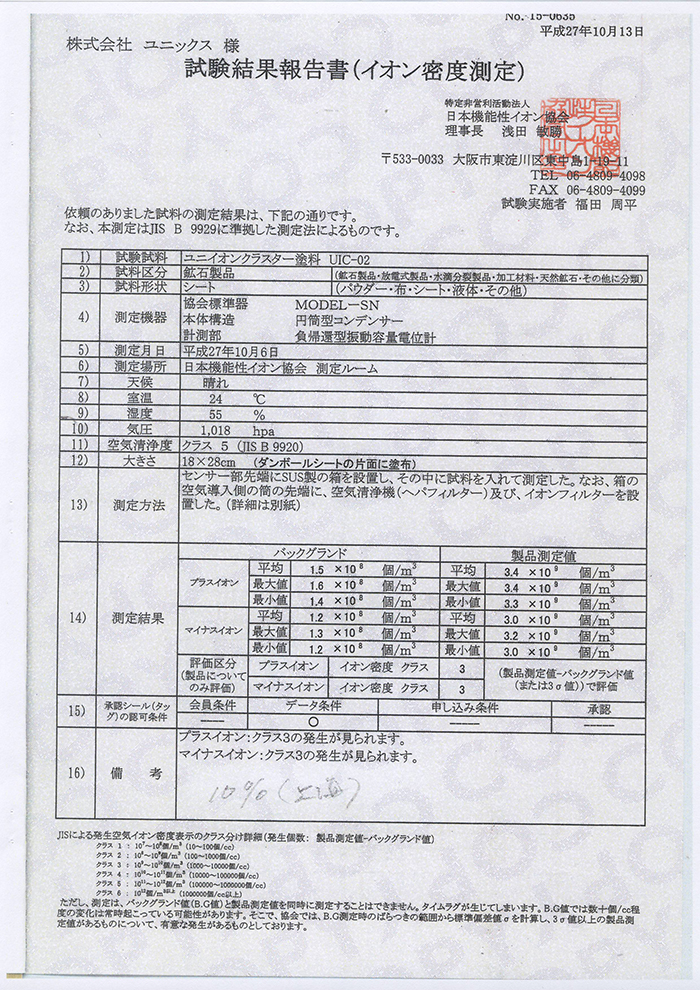 No. 15-0635
平成27年10月13日
株式会社 ユニックス 様
試験結果報告書(イオン密度測定)
特定非営利活動法人
日本機能性イオン協会
理事長 浅田 敏勝
〒533-0033 大阪市東淀川区東中島1-19-11
TEL 06-4809-4098
FAX 06-4809-4099
試験実施者 福田 周平
依頼のありました試料の測定結果は、下記の通りです。
なお、本測定はJIS B 9929に準拠した測定法によるものです。
1) 試験試料 ユニイオンクラスター塗料 UIC-02
2) 試料区分 鉱石製品 (鉱石製品・放電式製品・水滴分裂製品・加工材料・天然鉱石・その他に分類)
3) 試料形状 シート (パウダー・布・シート・液体・その他)
4) 測定機器 協会標準器 MODEL-SN
本体構造 円筒型コンデンサー
計測部 負帰還型振動容量電位計
5) 測定月日 平成27年10月6日
6) 測定場所 日本機能性イオン協会 測定ルーム
7) 天候 晴れ
8) 室温 24 ℃
9) 湿度 55 %
10) 気圧 1,018 hpa
11) 空気清浄度 クラス 5 (JIS B 9920)
12) 大きさ 18×28cm (ダンボールシートの片面に塗布)
13) 測定方法 センサー部先端にSUS製の箱を設置し、その中に試料を入れて測定した。なお、箱の
空気導入側の筒の先端に、空気清浄機(ヘパフィルター)及び、イオンフィルターを設
置した。(詳細は別紙)
14) 測定結果
バックグランド 製品測定値
プラスイオン 平均 1.5 ×10⁸ 個/m³ 平均 3.4 ×10⁹ 個/m³
最大値 1.6 ×10⁸ 個/m³ 最大値 3.4 ×10⁹ 個/m³
最小値 1.4 ×10⁸ 個/m³ 最小値 3.3 ×10⁹ 個/m³
マイナスイオン 平均 1.2 ×10⁸ 個/m³ 平均 3.0 ×10⁹ 個/m³
最大値 1.3 ×10⁸ 個/m³ 最大値 3.2 ×10⁹ 個/m³
最小値 1.2 ×10⁸ 個/m³ 最小値 3.0 ×10⁹ 個/m³
評価区分(製品についてのみ評価) プラスイオン イオン密度 クラス 3 (製品測定値-バックグランド値(または3σ値))で評価
マイナスイオン イオン密度 クラス 3
15) 承認シール(タッグ)の認可条件 会員条件 データ条件 申し込み条件 承認
―― ○ ―― ――
16) 備考 プラスイオン:クラス3の発生が見られます。
マイナスイオン:クラス3の発生が見られます。
10%
JISによる発生空気イオン密度表示のクラス分け詳細(発生個数: 製品測定値-バックグランド値)
クラス 1 : 10⁷~10⁸個/m³ (10~100個/cc)
クラス 2 : 10⁸~10⁹個/m³ (100~1000個/cc)
クラス 3 : 10⁹~10¹⁰個/m³ (1000~10000個/cc)
クラス 4 : 10¹⁰~10¹¹個/m³ (10000~100000個/cc)
クラス 5 : 10¹¹~10¹²個/m³ (100000~1000000個/cc)
クラス 6 : 10¹²個/m³以上 (1000000個/cc以上)
ただし、測定は、バックグランド値(B.G値)と製品測定値を同時に測定することはできません。タイムラグが生じてしまいます。B.G値では数十個/cc程
度の変化は常時起こっている可能性があります。そこで、協会では、B.G測定時のばらつきの範囲から標準偏差値σを計算し、3σ値以上の製品測
定値があるものについて、有意な発生があるものとしております。